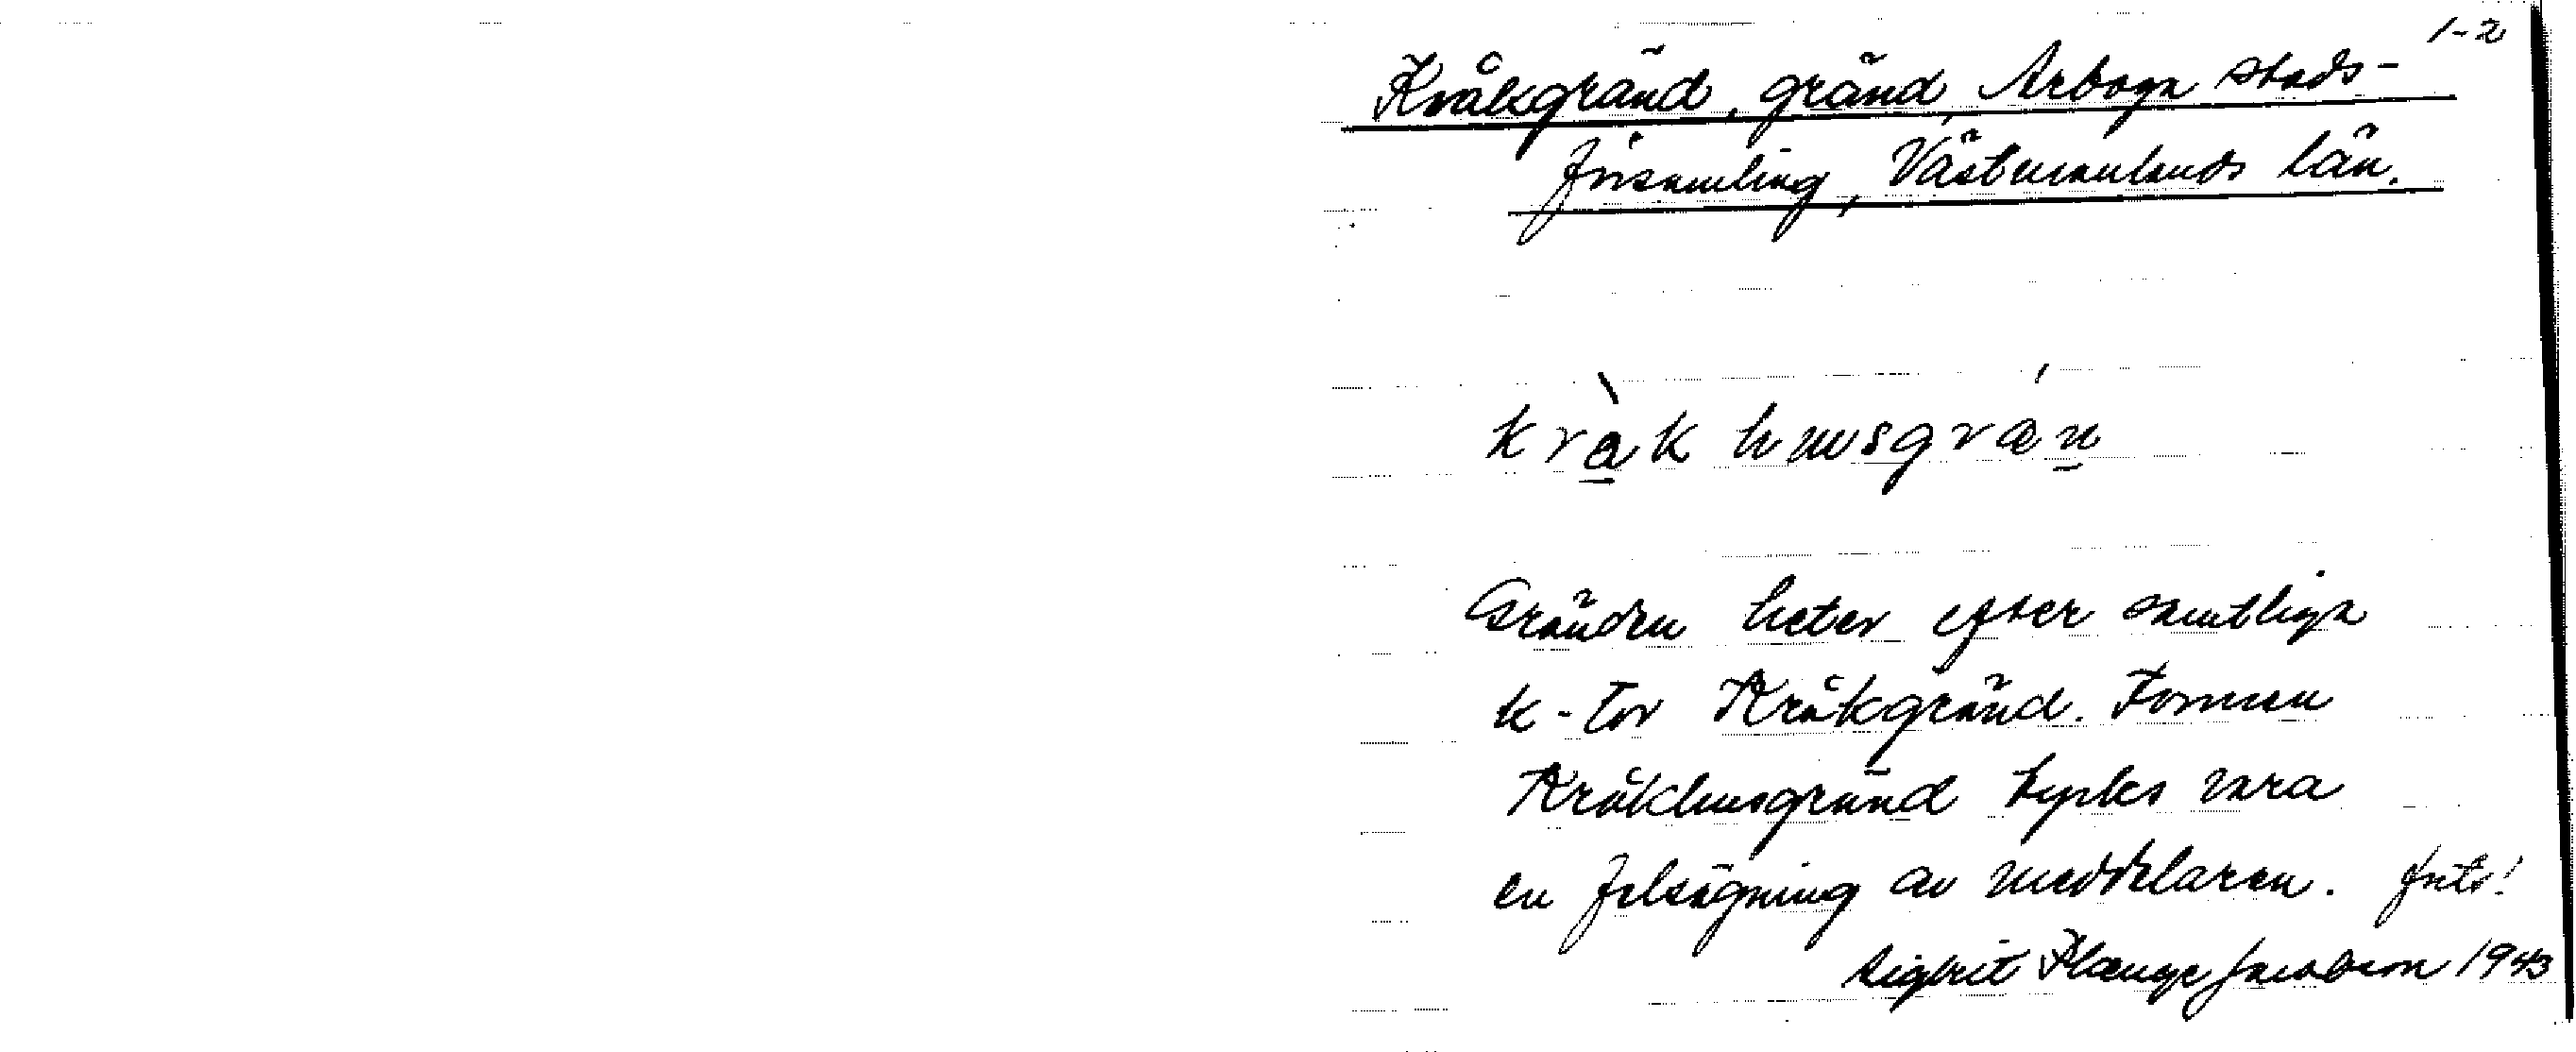 1-2
Kråkgränd, gränd, Arboga stads-
församling, Västmanlands län.
kråkhusgrän
Gränden heter efter samtliga
k-tor Kråkgränd. Formen
Kråkhusgränd tycks vara
en felsägning av meddelaren. forts!
Sigbrit Plænge Jacobson 1943